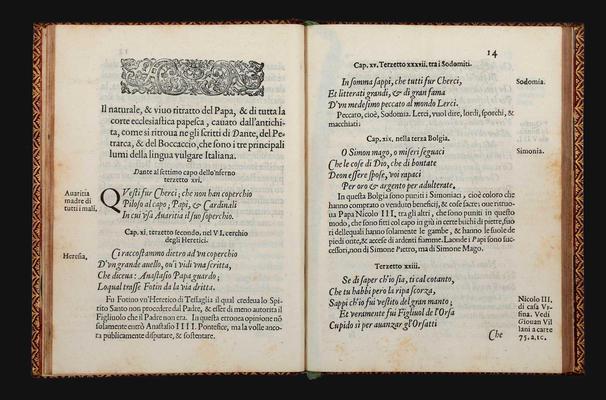 Il naturale, & viuo ritratto del Papa, & di tutta la
corte ecclesiastica papesca, cauato dall'antichi-
ta, come si ritroua ne gli scritti di Dante, del Pe-
trarca, & del Boccaccio, che sono i tre principali
lumi della lingua vulgare Italiana.
Dante al settimo capo dello'nferno
terzetto xvi.
Auaritia
madre di
tutti i mali.
QVesti fur Cherci; che non han coperchio
Piloso al capo; Papi, & Cardinali
In cui vsa Auaritia il suo soperchio.
Cap. xi. terzetto secondo, nel VI. cerchio
degli Heretici.
Heresia.
Ci raccostammo dietro ad vn coperchio
D'vn grande auello, ou'i vidi vna scritta,
Che diceua: Anastasio Papa guardo;
Loqual trasse Fotin da la via dritta.
Fu Fotino vn'Heretico di Tessaglia il qual credeua lo Spi-
rito Santo non procedere dal Padre, & esser di meno autorita il
Figliuolo che il Padre non era. In questa erronea opinione nō
solamente entrò Anastasio IIII. Pontefice, ma la volle anco-
ra publicamente disputare, & sostentare.
14
Cap. xv. Terzetto xxxvii, tra i Sodomiti.
In somma sappi, che tutti fur Cherci,
Sodomia.
Et litterati grandi, & di gran fama
D'vn medesimo peccato al mondo Lerci.
Peccato, cioè, Sodomia. Lerci, vuol dire, lordi, sporchi, &
macchiati.
Cap. xix. nella terza Bolgia.
O Simon mago, o miseri seguaci
Simonia.
Che le cose di Dio, che di bontate
Deon essere spose, voi rapaci
Per oro & argento per adulterate,
In questa Bolgia sono puniti i Simoniaci, cioè coloro che
hanno comprato o venduto beneficij, & cose sacre: oue ritruo-
ua Papa Nicolo III, tra gli altri, che sono puniti in questo
modo, che sono fitti col capo in giu in certe buchi di pietre, fuo-
ri dellequali hanno solamente le gambe, & hanno le suole de
piedi onte, & accese di ardenti fiamme. Laonde i Papi sono suc-
cessori, non di Simone Pietro, ma di Simone Mago.
Terzetto xxiii.
Se di saper ch'io sia, ti cal cotanto,
Che tu habbi pero la ripa scorza,
Sappi ch'io fui vestito del gran manto;
Et veramente fui Figliuol de l'Orsa
Cupido sì per auanzar gl'Orsatti
Nicolo III.
di casa Vr-
sina. Vedi
Giouan Vil
lani a carte
75. 2. tc.
Che